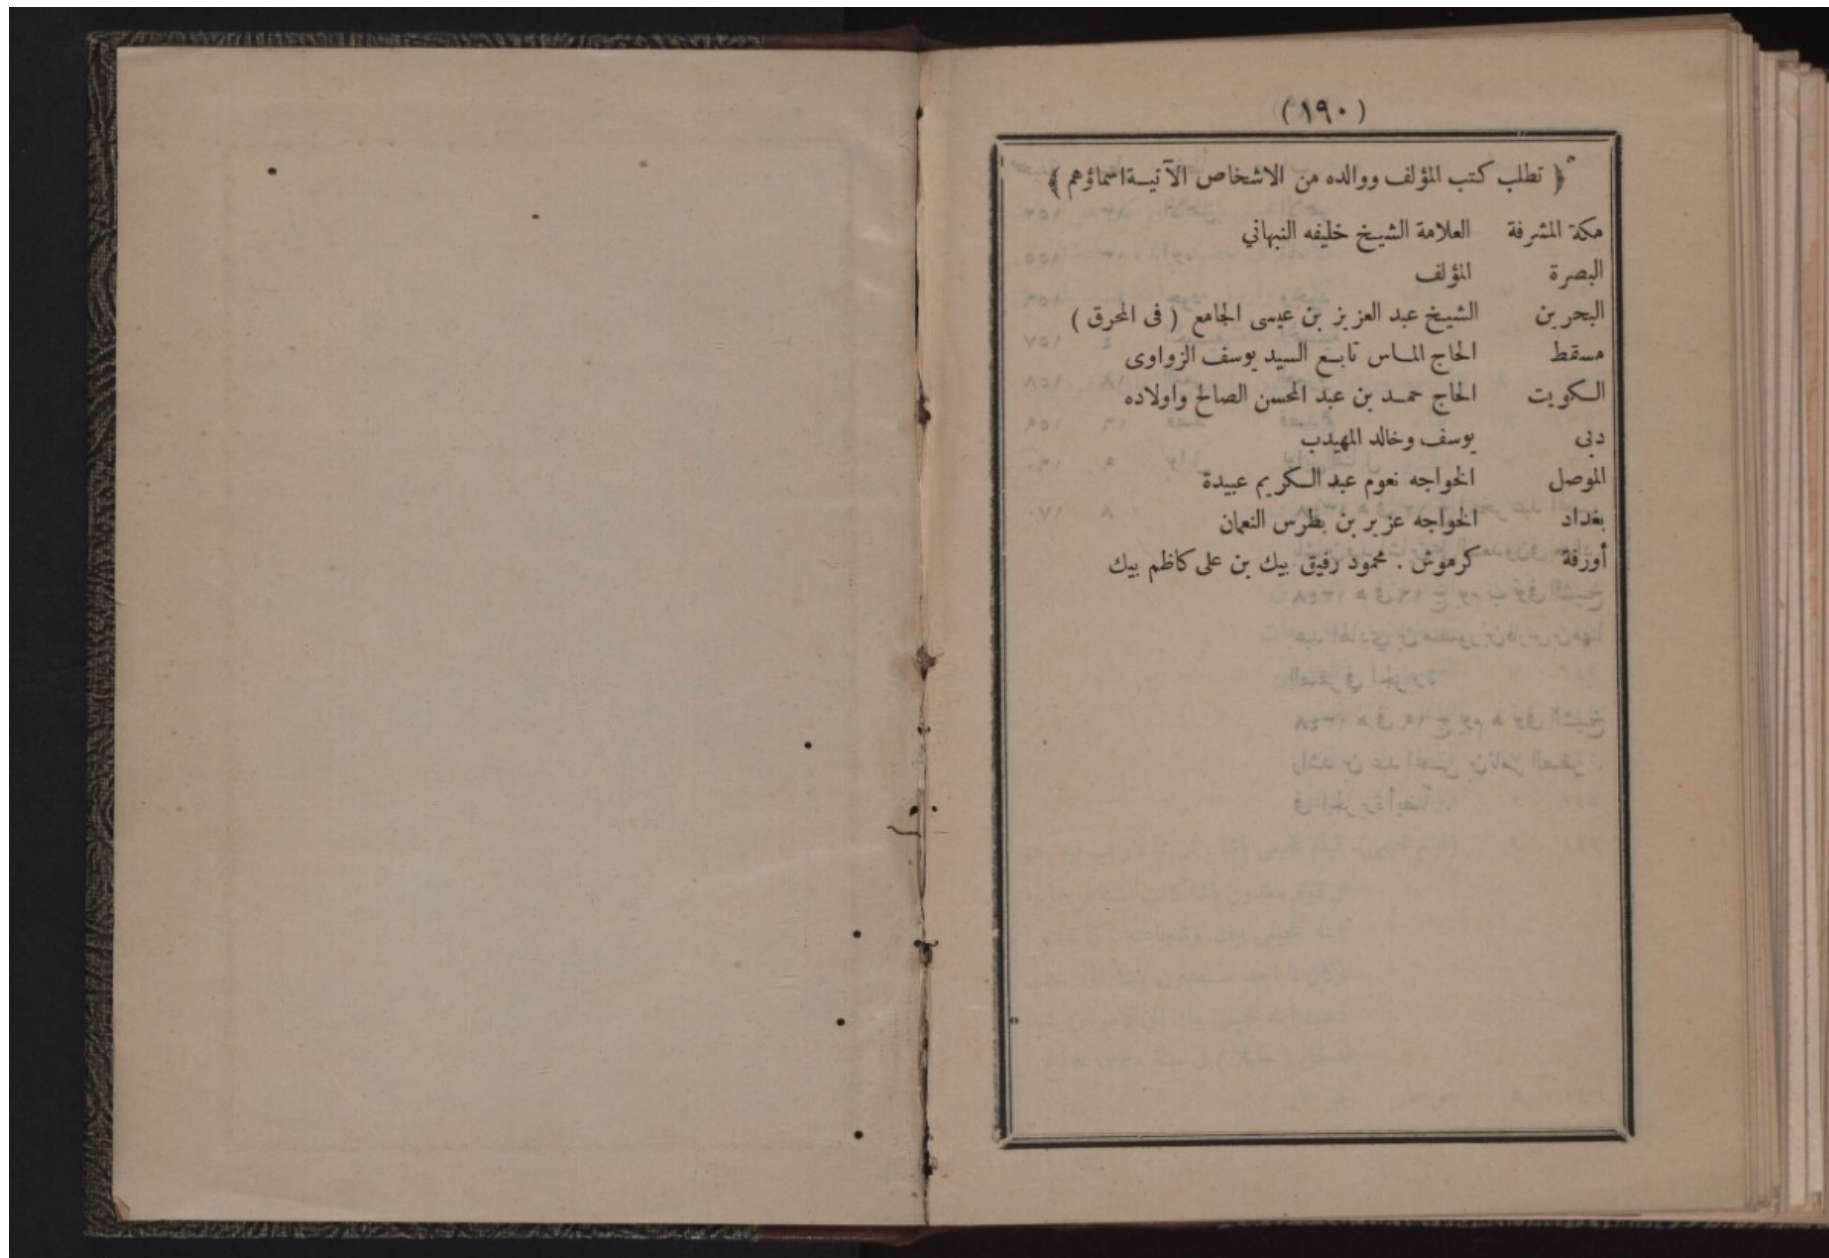 (١٩٠)
﴿ تطلب كتب المؤلف ووالده من الاشخاص الآتيـة اسماؤهم ﴾
مكة المشرفة العلامة الشيخ خليفه النبهاني
البصرة المؤلف
البحرين الشيخ عبد العزيز بن عيسى الجامع ( فى المحرق )
مسقط الحاج المـاس تابـع السيد يوسف الزواوى
الـكويت الحاج حمـد بن عبد المحسن الصالح واولاده
دبى يوسف وخالد المهيدب
الموصل الخواجه نعوم عبد الـكريم عبيدة
بغداد الخواجه عزير بن بطرس النعمان
أورفة كرموش . محمود رفيق بيك بن على كاظم بيك